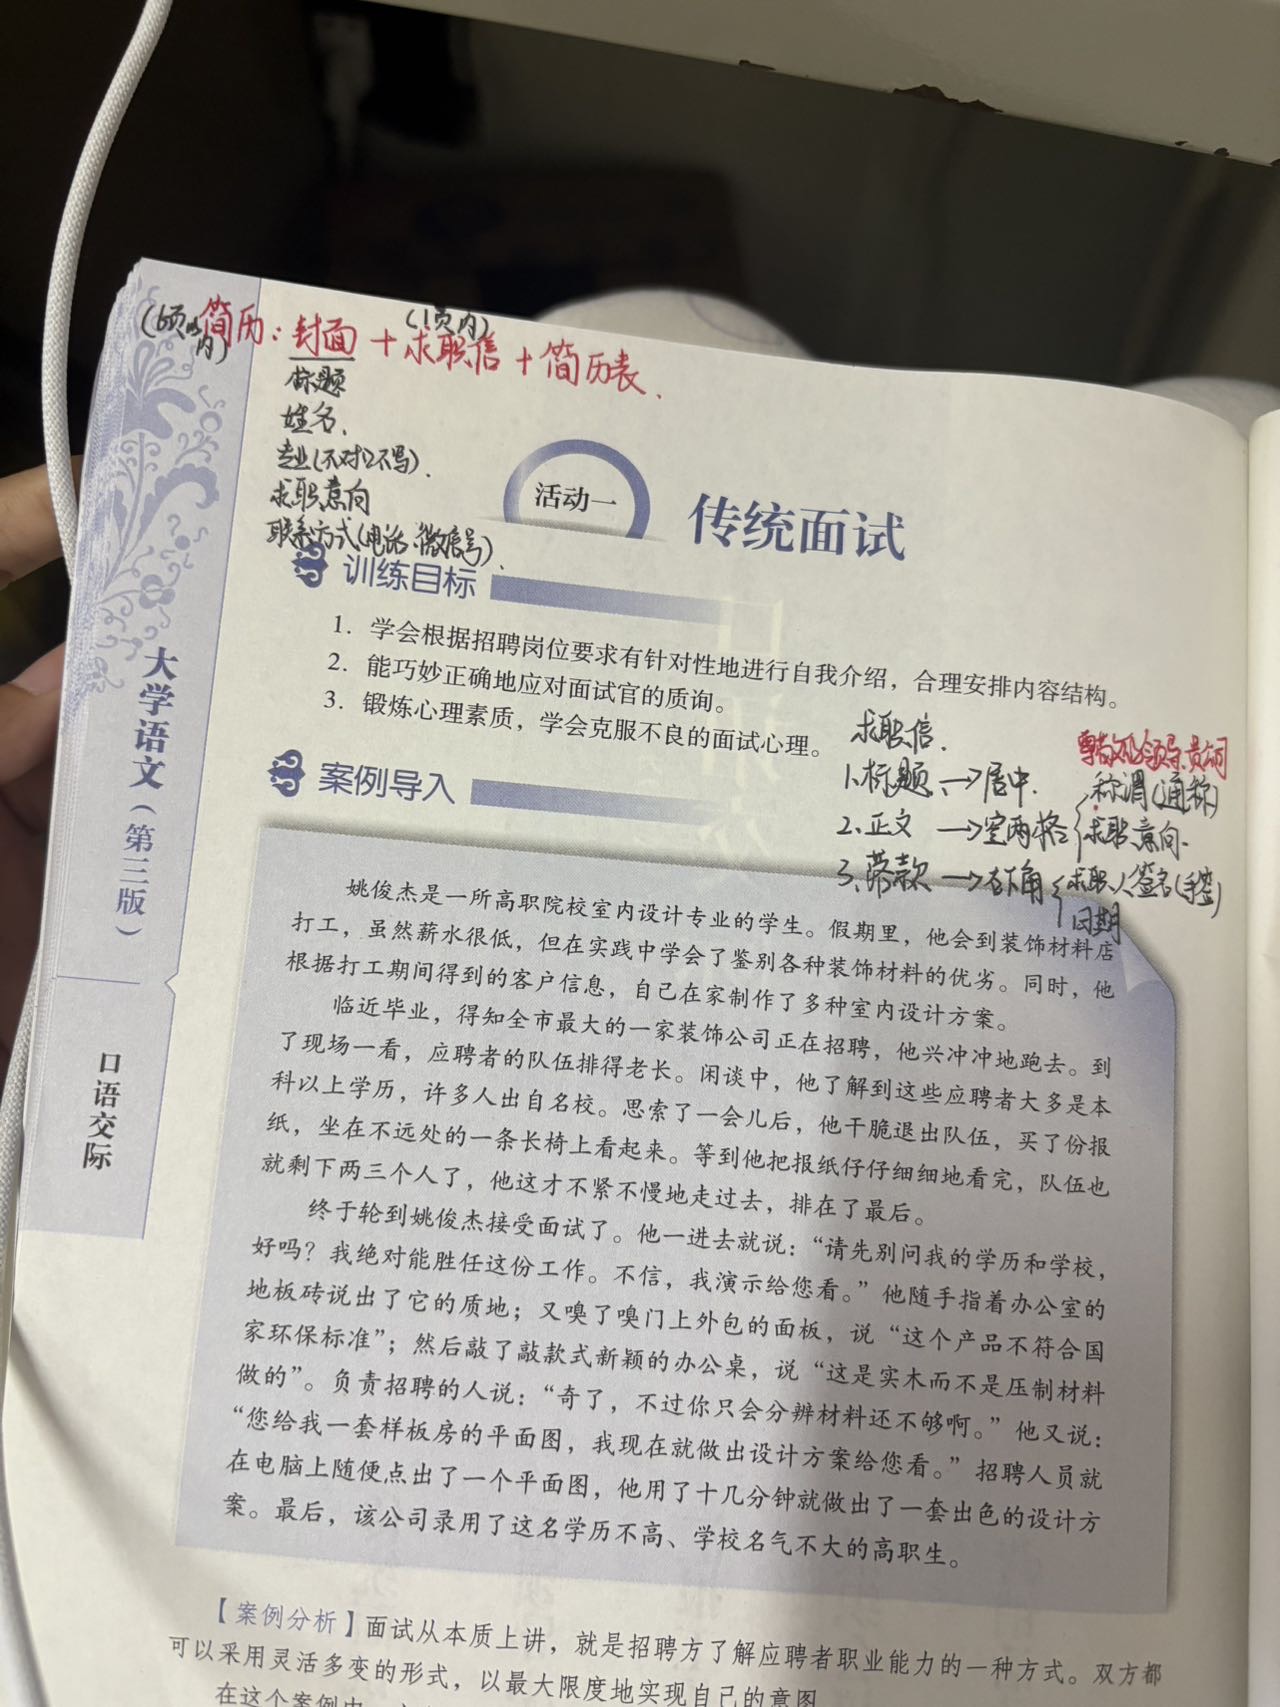 (6页以内)
简历：封面+求职信+简历表.
(1页内)
标题
姓名.
专业(不对口不写).
求职意向
联系方式(电话、微信号).
活动一
传统面试
训练目标
1. 学会根据招聘岗位要求有针对性地进行自我介绍，合理安排内容结构。
2. 能巧妙正确地应对面试官的质询。
3. 锻炼心理素质，学会克服不良的面试心理。
求职信.
1.标题、→居中.
2.正文 →空两格
3.落款 →右下角
尊敬的领导、贵公司
称谓(通称)
求职意向.
求职人签名(手签)
日期
案例导入
姚俊杰是一所高职院校室内设计专业的学生。假期里，他会到装饰材料店
打工，虽然薪水很低，但在实践中学会了鉴别各种装饰材料的优劣。同时，他
根据打工期间得到的客户信息，自己在家制作了多种室内设计方案。
临近毕业，得知全市最大的一家装饰公司正在招聘，他兴冲冲地跑去。到
了现场一看，应聘者的队伍排得老长。闲谈中，他了解到这些应聘者大多是本
科以上学历，许多人出自名校。思索了一会儿后，他干脆退出队伍，买了份报
纸，坐在不远处的一条长椅上看起来。等到他把报纸仔仔细细地看完，队伍也
就剩下两三个人了，他这才不紧不慢地走过去，排在了最后。
终于轮到姚俊杰接受面试了。他一进去就说：“请先别问我的学历和学校，
好吗？我绝对能胜任这份工作。不信，我演示给您看。”他随手指着办公室的
地板砖说出了它的质地；又嗅了嗅门上外包的面板，说“这个产品不符合国
家环保标准”；然后敲了敲款式新颖的办公桌，说“这是实木而不是压制材料
做的”。负责招聘的人说：“奇了，不过你只会分辨材料还不够啊。”他又说：
“您给我一套样板房的平面图，我现在就做出设计方案给您看。”招聘人员就
在电脑上随便点出了一个平面图，他用了十几分钟就做出了一套出色的设计方
案。最后，该公司录用了这名学历不高、学校名气不大的高职生。
【案例分析】面试从本质上讲，就是招聘方了解应聘者职业能力的一种方式。双方都
可以采用灵活多变的形式，以最大限度地实现自己的意图
在这个案例中
大学语文（第三版）
口语交际